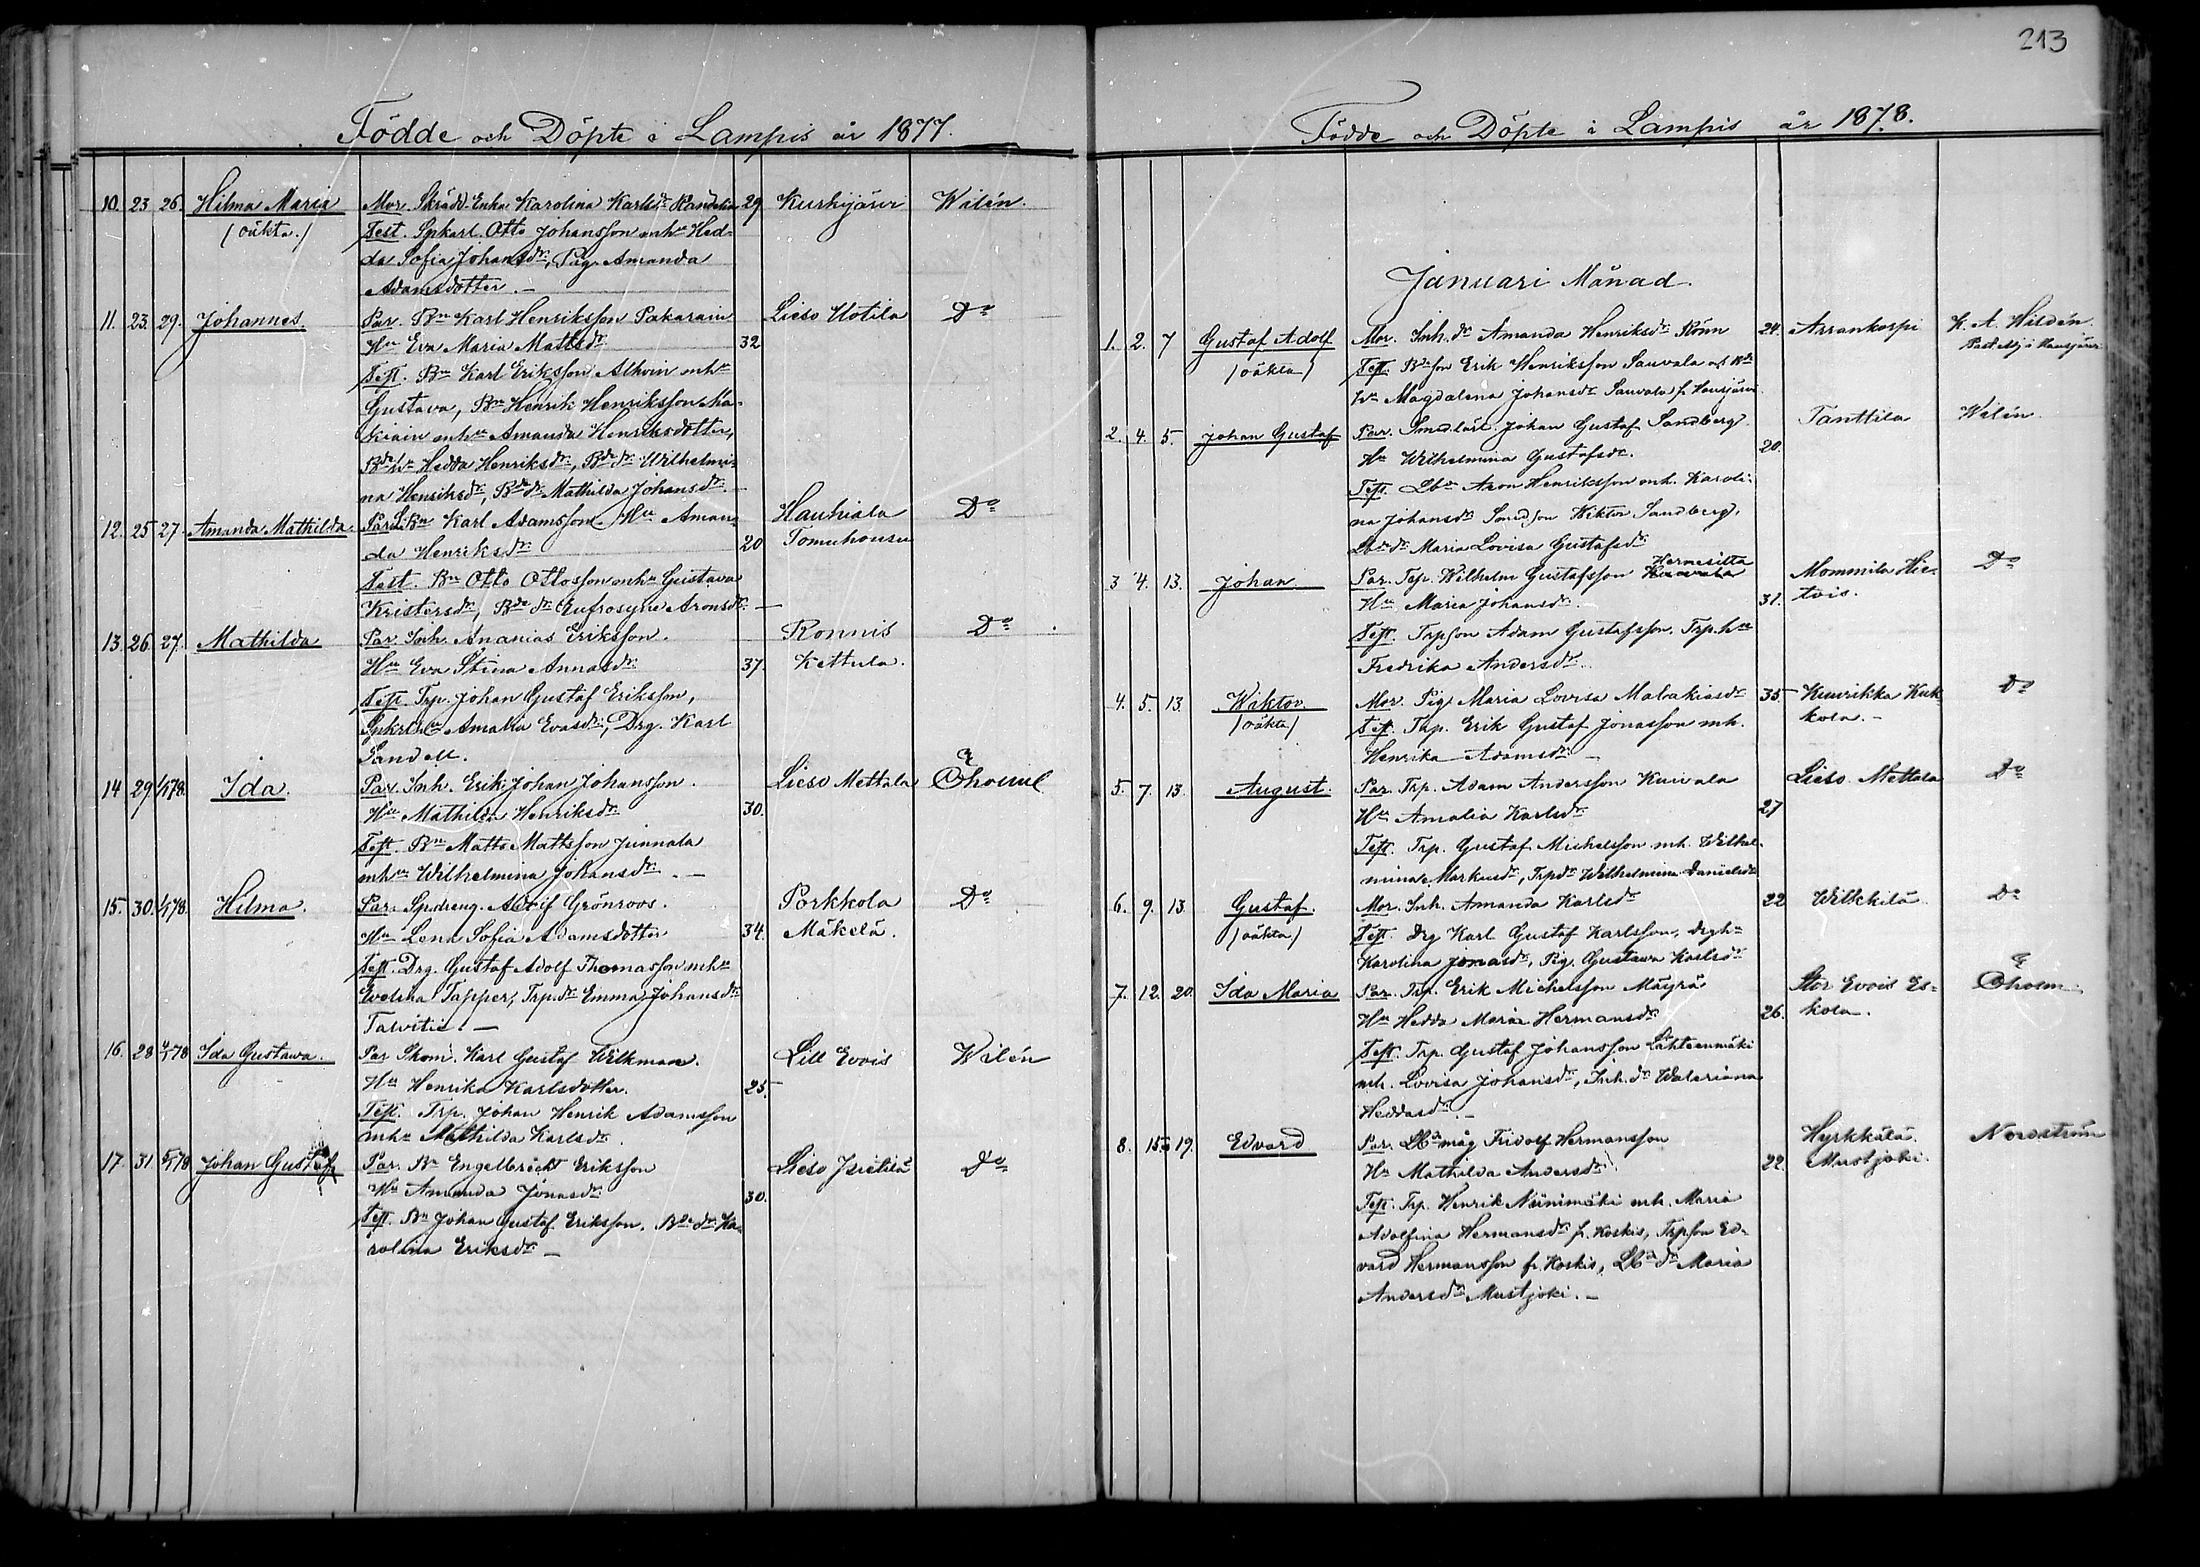 213
Födde och Döpte i Lampis år 1877.
10. 23 26. Hilma Maria Mor. Skrädd. Enka Karolina Karlsdr Randelin 29 Kurkijärvi Wilén.
/oäkta./ Test. Spkarl. Otto Johansson mhu Hed-
da Sofia Johansdr, Pig. Amanda
Adamsdotter. —
11. 23. 29. Johannes. Par. Bn Karl Henriksson Pakarain Lieso Uotila Do
Hu Eva Maria Mattsdr 32
Test. Bn Karl Eriksson Alhoin mhu
Gustava, Bn Henrik Henriksson Ma-
kiain mhu Amanda Henriksdotter,
Bdehu Hedda Henriksdr, Bdedr Wilhelmi-
na Henriksdr, Bdedr Mathilda Johansdr. —
12. 25 27. Amanda Mathilda Par. Bn Karl Adamsson. Hu Aman- Hauhiala Do
da Henriksdr 20 Tomuhousu
Test. Bn Otto Ottosson mhu Gustava
Kristersdr, Bde dr Eufrosyne Aronsdr. —
13. 26. 27. Mathilda Par. Inh. Ananias Eriksson. Ronnis Do
Hu Eva Stina Annasdr 37. Kettula.
Test. Trp. Johan Gustaf Eriksson,
Spkrlhu Amalia Evasdr, Drg. Karl
Sandell.
14 29 1/1 78. Ida. Par. Inh. Erik Johan Johansson. Lieso Mettala
Hu Mathilda Henriksdr 30.
Test. Bn Matts Mattsson Junnala
mhu Wilhelmina Johansdr. —
15. 30. 1/1 78. Hilma. Par. Spdreng. Adolf Grönroos. Porkkola Do
Hu Lena Sofia Adamsdotter 34. Mäkelä.
Test. Drg. Gustaf Adolf Thomasson mhu
Evelina Tapper, Trp.dr Emma Johansdr
Talvitie. —
16. 28 4/1 78 Ida Gustava. Par. Skom. Karl Gustaf Wilkman. Lill Evois Wilén
Hu Henrika Karlsdotter. 25.
Test. Trp. Johan Henrik Adamsson
mhu Mathilda Karlsdr.
17. 31 5/1 78 Johan Gustaf Par. Bn Engelbrekt Eriksson Lieso Do
Hu Amanda Jonasdr 30.
Test. Bn Johan Gustaf Eriksson, Bde dr Ka-
rolina Eriksdr —
Födde och Döpte i Lampis år 1878.
Januari Månad.
1. 2. 7 Gustaf Adolf Mor. Inh. dr Amanda Henriksdr Rönn 24. Arrankorpi K. A. Hildén.
/oäkta/ Test. Bdeson Erik Henriksson Sauvala och Bde
hu Magdalena Johansdr Sauvala fr. Hausjärvi
2. 4. 5. Johan Gustaf Par. Smedlärl. Johan Gustaf Sandberg Tanttila Wilén.
Hu Wilhelmina Gustafsdr. 20.
Test. Lbn Aron Henriksson mh. Karoli-
na Johansdr Smedson Wiktor Sandberg,
Lbdedr Maria Lovisa Gustafsdr
3 4. 13. Johan Par. Trp. Wilhelm Gustafsson Hermesilta Mommila Hie- Do
Hu Maria Johansdr. 31. tois.
Test. Trpson Adam Gustafsson. Trp.hu
Fredrika Andersdr.
4. 5. 13. Wiktor Mor. Pig. Maria Lovisa Malakiasdr 35. Kuurikka Kuk- Do
/oäkta/ Test. Trp. Erik Gustaf Jonasson mh. kola. —
Henrika Adamsdr —
5. 7. 13. August. Par. Trp. Adam Andersson Kuivala Lieso Mettala Do
Hu Amalia Karlsdr 27
Test. Trp. Gustaf Michelsson mh. Wilhel-
mina Markusdr, Trpdr Wilhelmina Danielsdr
6. 9. 13. Gustaf. Mor. Inh. Amanda Karlsdr 22 Wilkkilä Do
/oäkta/ Test. Drg Karl Gustaf Karlsson, drghu
Karolina Jonasdr, Pig. Gustava Karlsdr
7. 12. 20. Ida Maria Par. Trp. Erik Michelsson Mäyrä Stor Evois Es-
Hu Hedda Maria Hermansdr 26. kola.
Test. Trp. Gustaf Johansson Lähteenmäki
mh. Lovisa Johansdr, Inh.dr Waleriana
Heddasdr. —
8. 15. 19. Edvard Par. Lbdmåg Fridolf Hermansson Hyrkkälä Nordström
Hu Mathilda Andersdr 22. Mustjoki.
Test. Trp. Henrik Niinimäki mh. Maria
Adolfina Hermansdr fr. Koskis, Trpson Ed-
vard Hermansson fr. Koskis, Lbdedr Maria
Andersdr Mustjoki. —